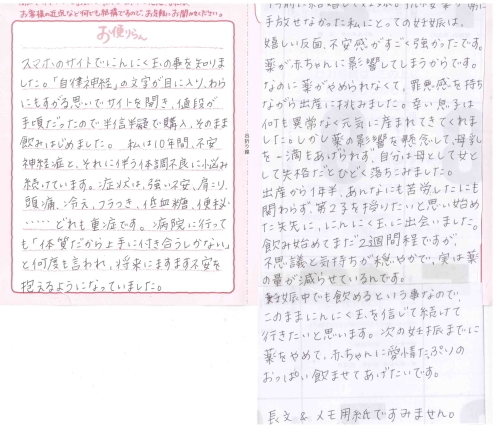 お客様の近況など何でも結構ですので、お気軽にお聞かせください。
お便りらん
スマホのサイトでにんにく玉の事を知りま
した。「自律神経」の文字が目に入り、わら
にもすがる思いでサイトを開き、値段が
手頃だったので半信半疑で購入、そのまま
飲みはじめました。 私は10年間、不安
神経症と、それに伴う体調不良に悩み
続けています。症状は、強い不安、肩こり、
頭痛、冷え、フラつき、低血糖、便秘
……どれも重症です。病院に行って
も「体質だから上手に付き合うしかない」
と何度も言われ、将来にますます不安を
抱えるようになっていました。
手放せなかった私にとっての妊娠は、
嬉しい反面、不安感がすごく強かったです。
薬が赤ちゃんに影響してしまうからです。
なのに薬がやめられなくて、罪悪感を持ち
ながら出産に挑みました。幸い息子は
何も異常なく元気に産まれてきてくれ
ました。しかし薬の影響を懸念して、母乳
を一滴もあげられず、自分は母として女と
して失格だとひどく落ちこみました。
出産から1年半、あんなにも苦労したにも
関わらず、第2子を授りたいと思い始め
た矢先に、にんにく玉に出会いました。
飲み始めてまだ2週間程ですが、
不思議と気持ちが穏やかで、実は薬
の量が減らせているんです。
妊娠中でも飲めるという事なので、
このままにんにく玉を信じて続けて
行きたいと思います。次の妊娠までに
薬をやめて、赤ちゃんに愛情たっぷりの
おっぱい飲ませてあげたいです。
長文 & メモ用紙ですみません。